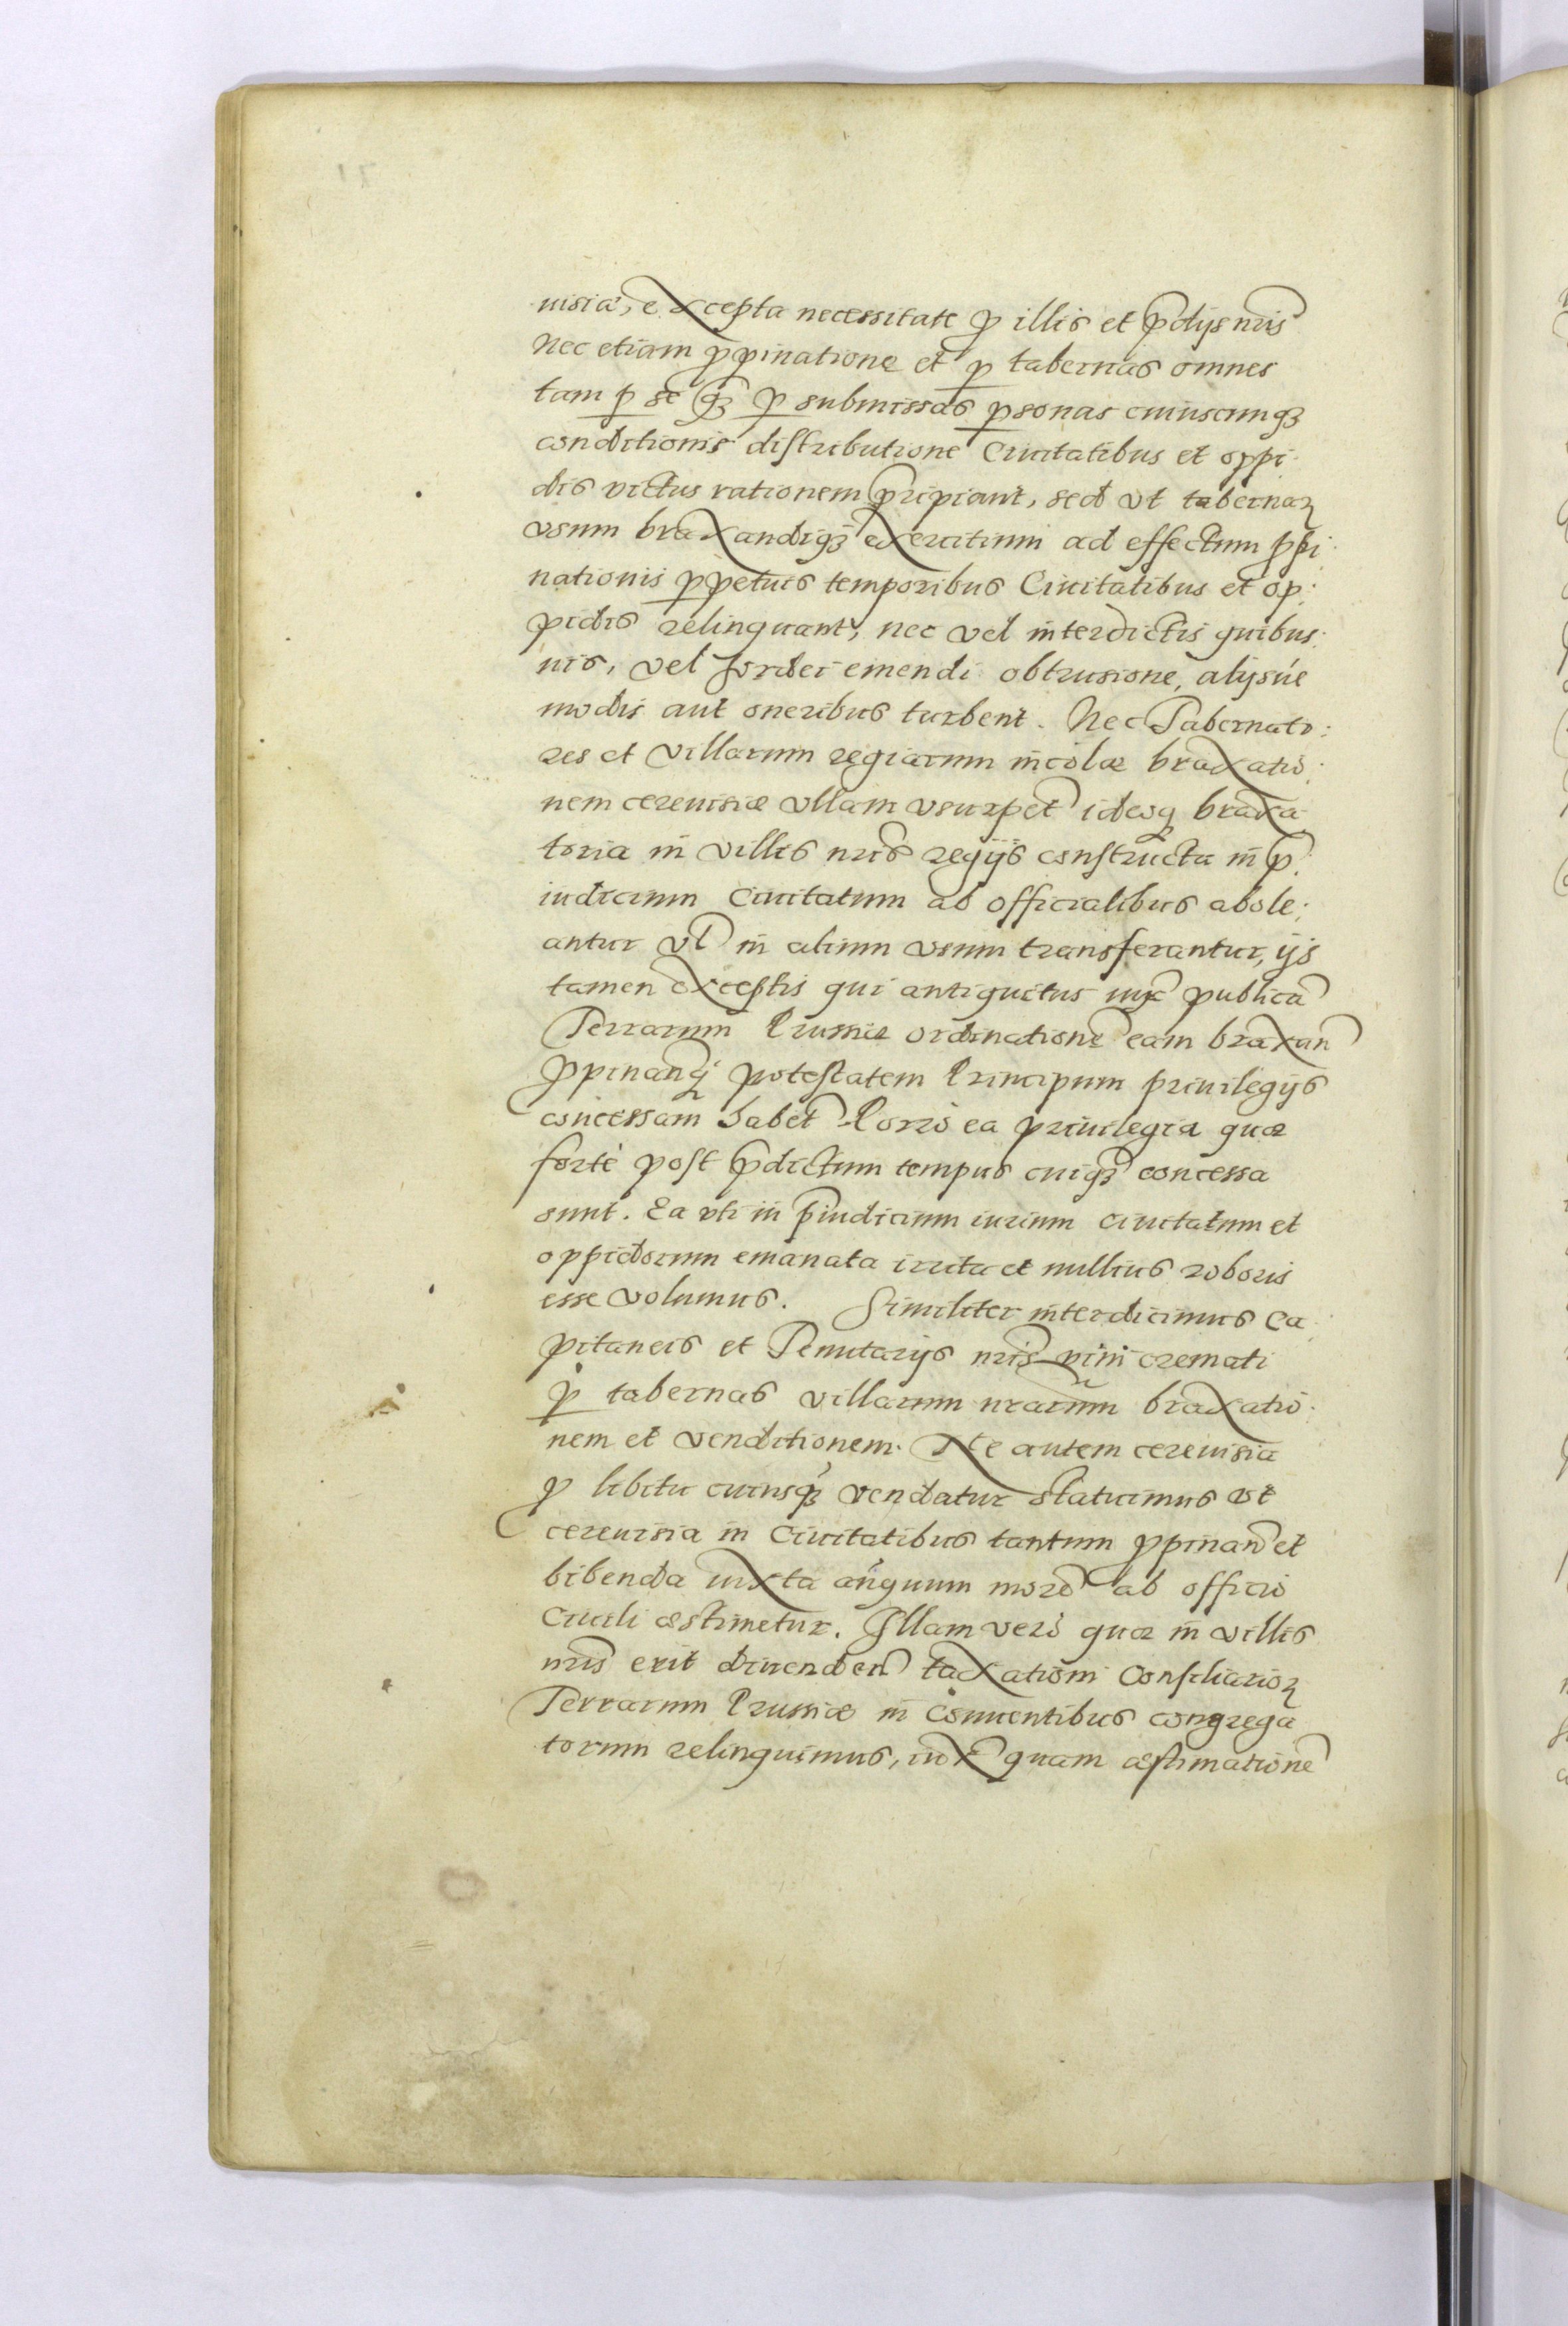 uisiæ, excepta necessitate ꝓ illis et p̄dijs nr̄is
Nec etiam ꝓpinatione et ꝑ tabernas omnes
tam ꝑ se qꝫ ꝑ submissas ꝑsonas cuiuscunqꝫ
conditionis distributione Ciuitatibus et oppi:
dis victus rationem p̄ripiant, sed vt tabernaꝝ
vsum braxandiqꝫ exercitium ad effectum ꝓpi:
nationis ꝑpetuis temporibus Ciuitatibus et op:
pidis relinquant, nec vel interdictis quibus:
uis, vel hordei emendi obtrusione, alijsúe
modis aut oneribus turbent. Nec Tabernato:
res et villarum regiarum incolæ braxatio:
nem cereuisiæ vllam vsurpēt ideoqꝫ braxa
toria in villis nr̄is regijs constructa in p̄:
iudicium Ciuitatum ab officialibus abole:
antur vl̄ in alium vsum transferantur, ijs
tamen exceptis qui antiquitus iux̄ publicā
Terrarum Prussiæ ordinationē eam braxan̄
ꝓpinan̄qꝫ potestatem Principum priuilegijs
concessam habēt Porrò ea priuilegia quæ
fortè post p̄dictum tempus cuiqꝫ concessa
sunt. Ea vti in p̄iudicium iurium ciuitatum et
oppidorum emanata irrita et nullius roboris
esse volumus. Similiter interdicimus Ca:
pitaneis et Tenutarijs nr̄is vini cremati
ꝑ tabernas villarum nrarum braxatio:
nem et venditionem. Ne autem cereuisia
ꝓ libitu cuiusqꝫ vendatur statuimus vt
cereuisia in Ciuitatibus tantum ꝓpinan̄ et
bibenda iuxta an̄quum morē ab officio
Ciuili æstimetur. Illam verò quæ in villis
nr̄is erit diuenden̄ taxationi Consiliarioꝝ
Terrarum Prussiæ in Conuentibus congrega
torum relinquimus, iux̄ quam æstimationē